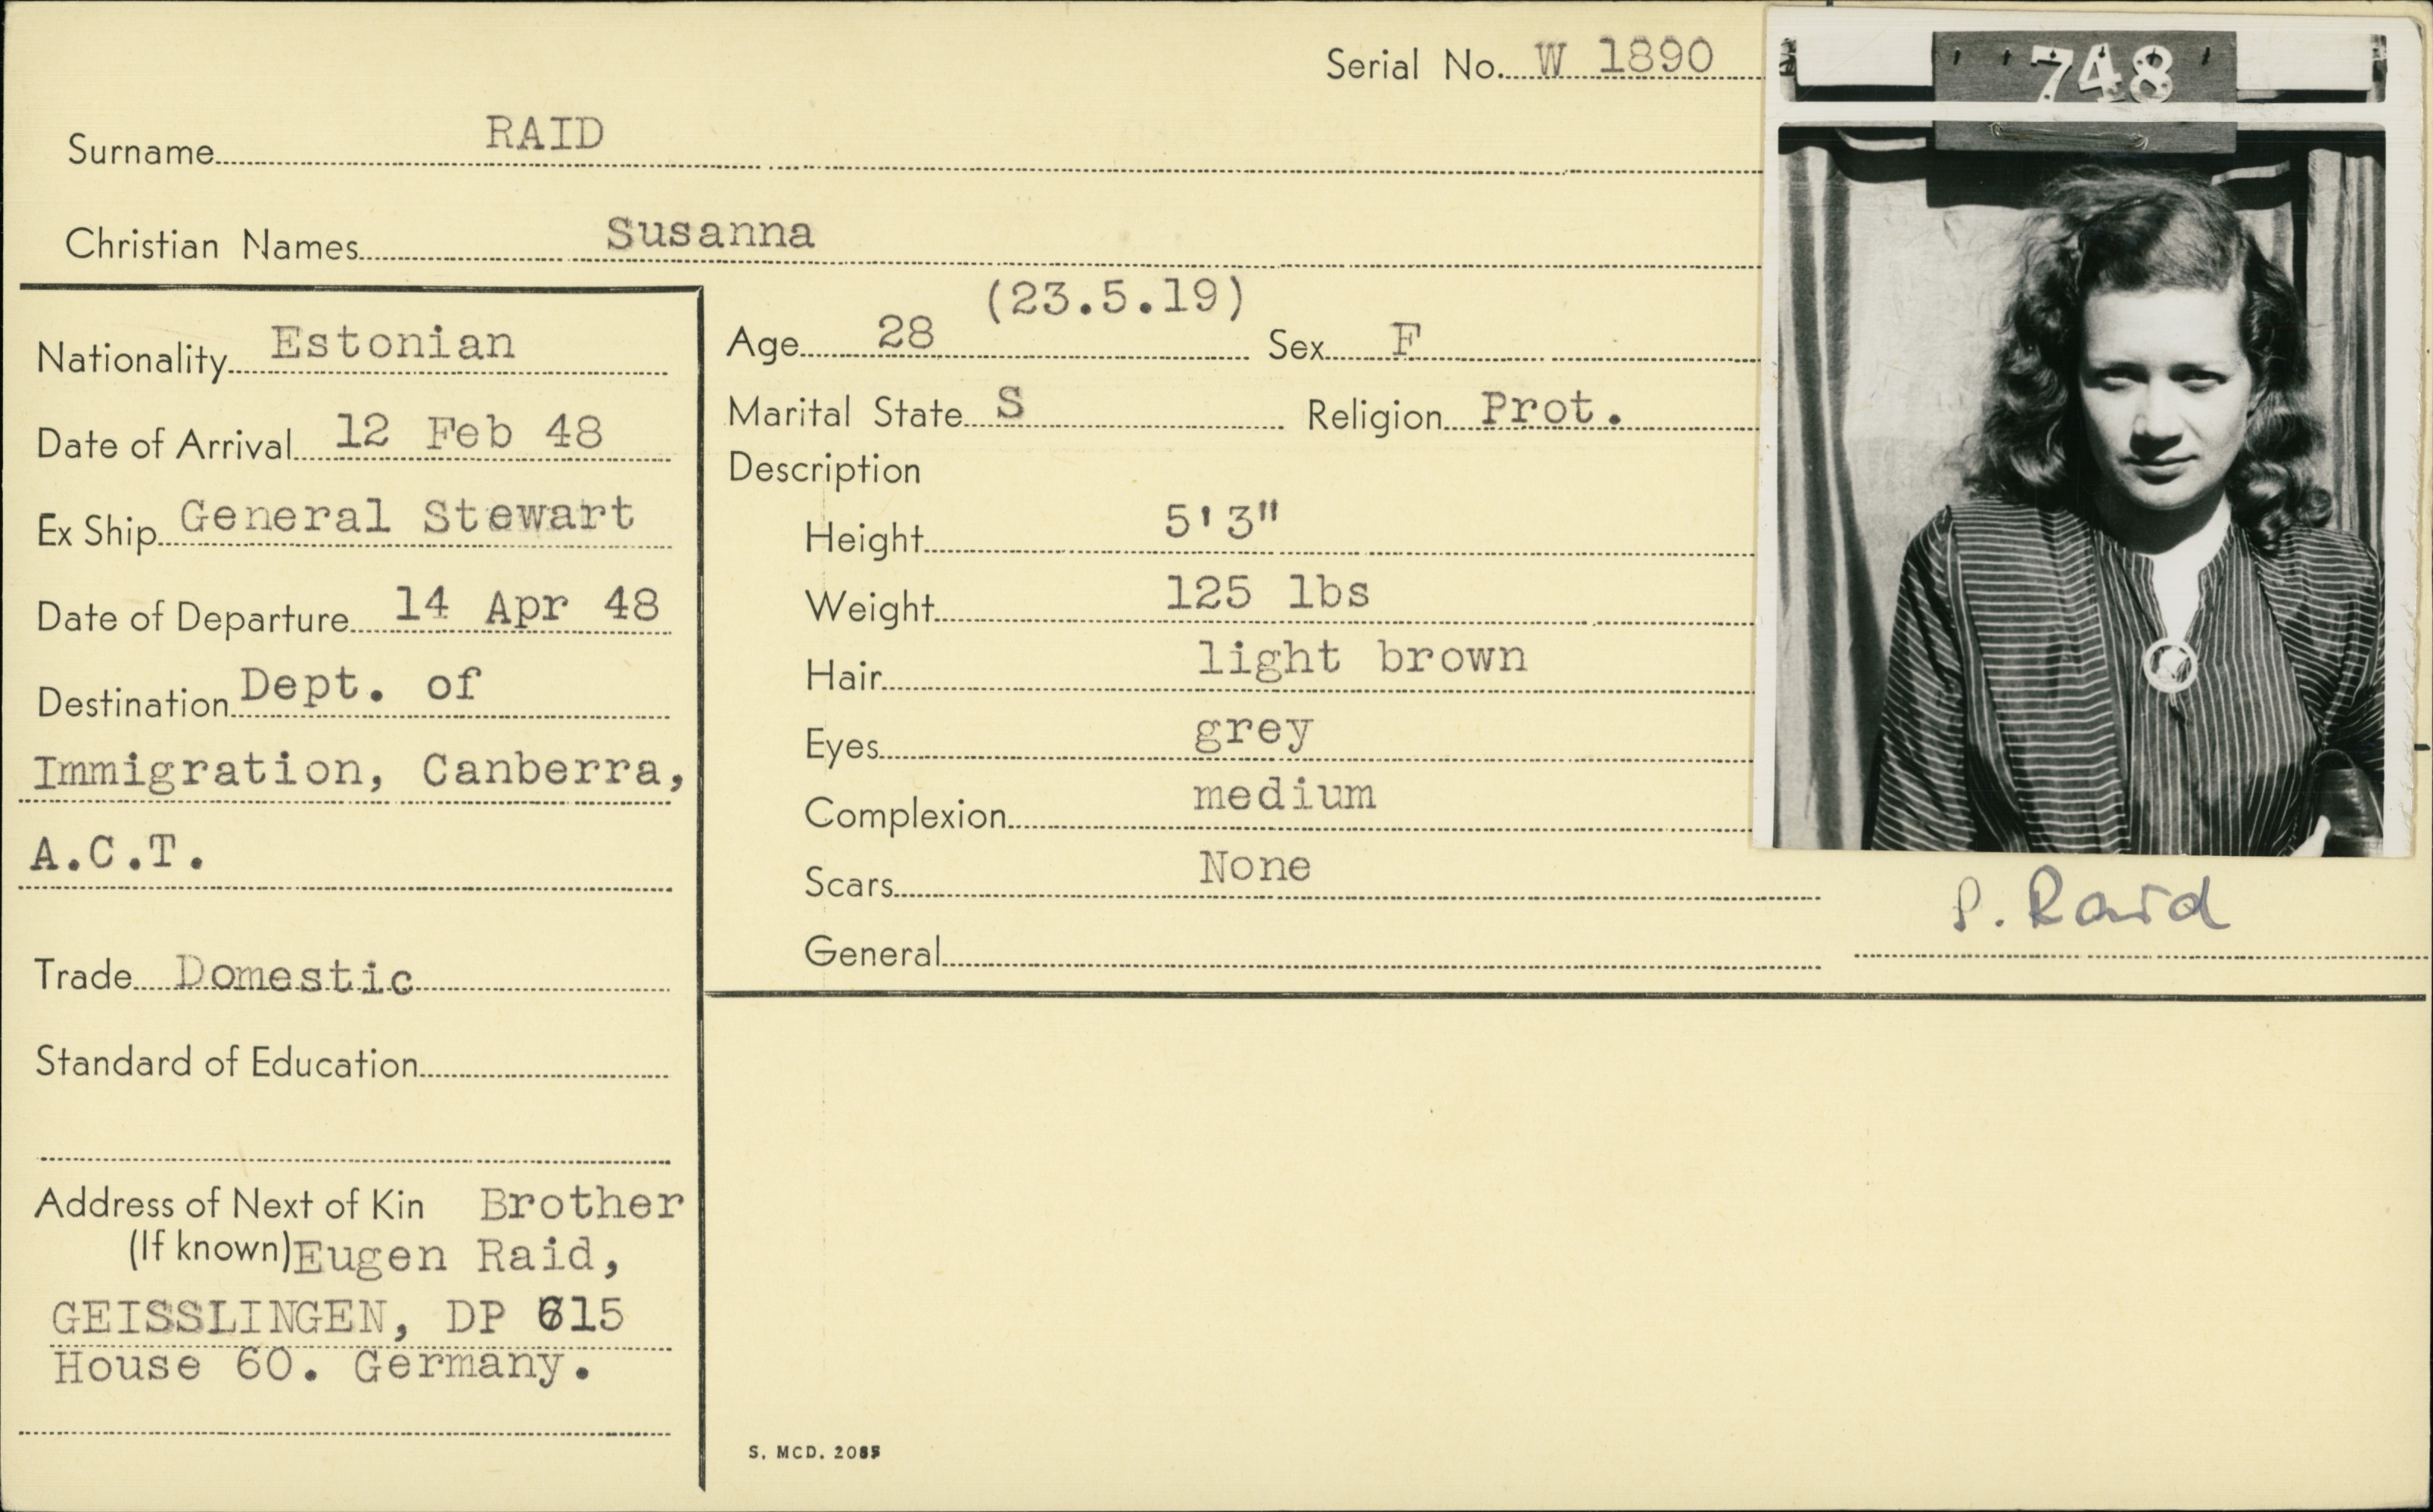 Serial No. W 1890
748
Surname RAID
Christian Names Susanna
Nationality Estonian
Date of Arrival 12 Feb 48
Ex Ship General Stewart
Date of Departure 14 Apr 48
Destination Dept. of
Immigration, Canberra,
A.C.T.
Trade Domestic
Standard of Education
Address of Next of Kin Brother
(If known) Eugen Raid,
GEISSLINGEN, DP 615
House 60. Germany.
(23.5.19)
Age 28 Sex F
Marital State S Religion Prot.
Description
Height 5'3"
Weight 125 lbs
Hair light brown
Eyes grey
Complexion medium
Scars None
General
S. Raid
S. MCD.